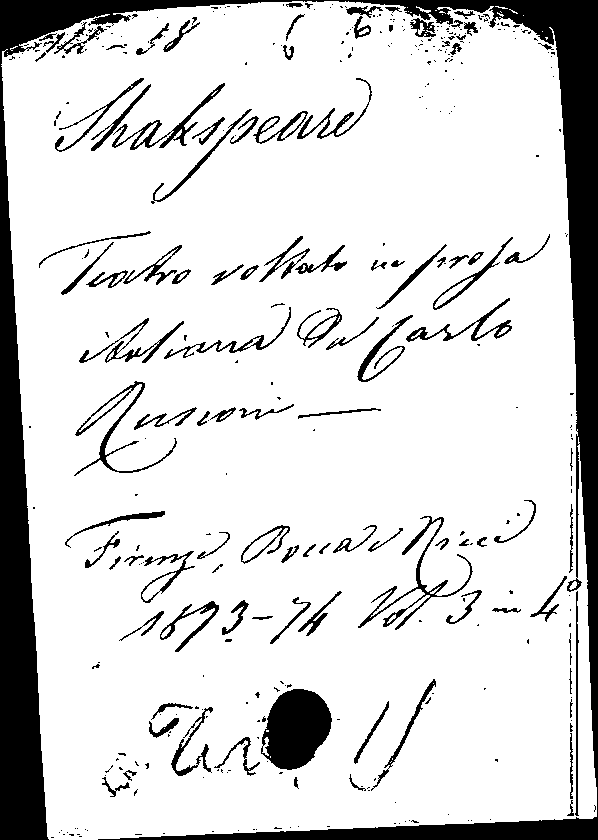 58 6 6.
Shakspeare
Teatro voltato in prosa
italiana da Carlo
Rusconi —
Firenze, Bocca e Ricci
1873-74 Vol. 3 in 4°